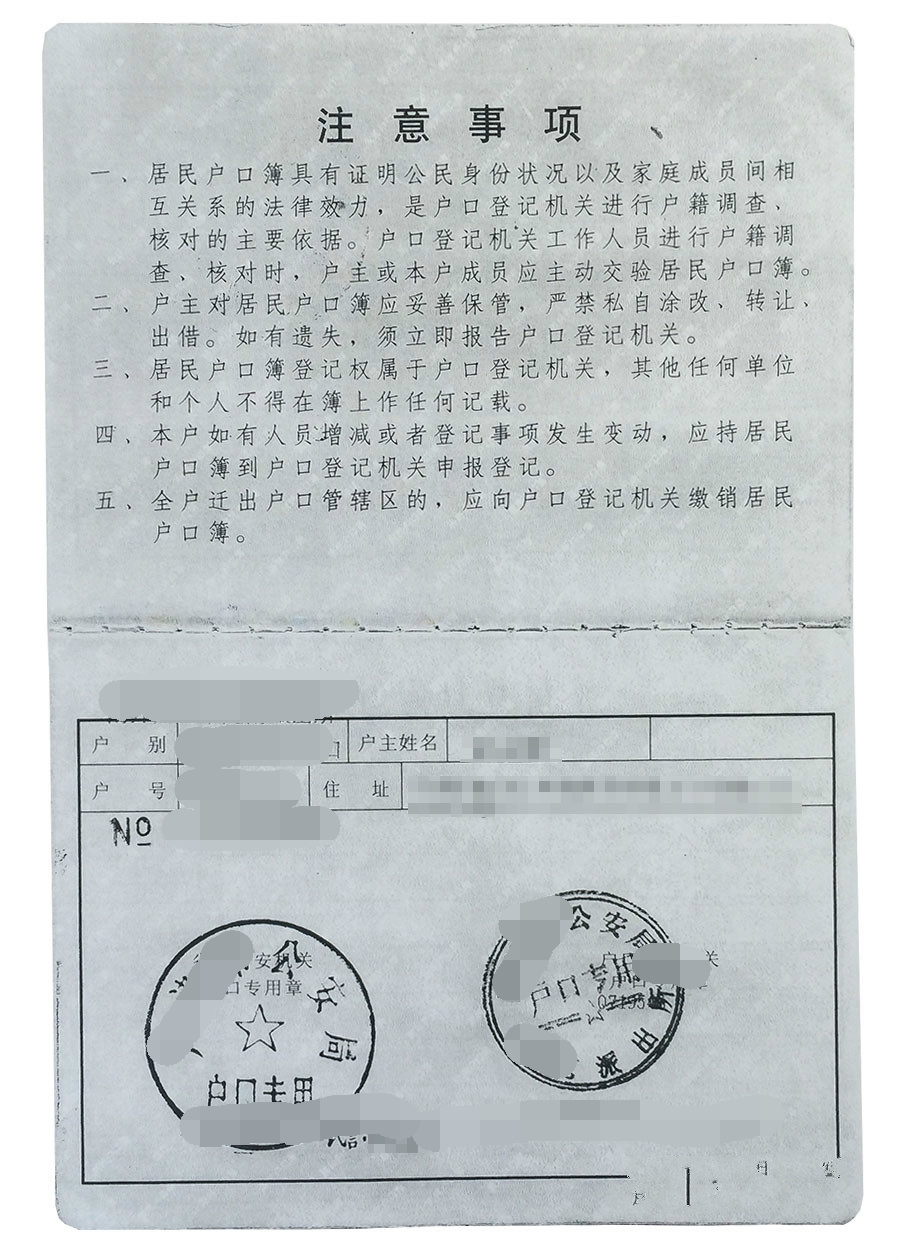 注意事项
一、居民户口簿具有证明公民身份状况以及家庭成员间相
互关系的法律效力，是户口登记机关进行户籍调查、
核对的主要依据。户口登记机关工作人员进行户籍调
查、核对时，户主或本户成员应主动交验居民户口簿。
二、户主对居民户口簿应妥善保管，严禁私自涂改、转让、
出借。如有遗失，须立即报告户口登记机关。
三、居民户口簿登记权属于户口登记机关，其他任何单位
和个人不得在簿上作任何记载。
四、本户如有人员增减或者登记事项发生变动，应持居民
户口簿到户口登记机关申报登记。
五、全户迁出户口管辖区的，应向户口登记机关缴销居民
户口簿。
户别 户主姓名
户号 住址
№
公安局
安机关
口专用章
户口专用
公安局
户口专用
派出所
关
日